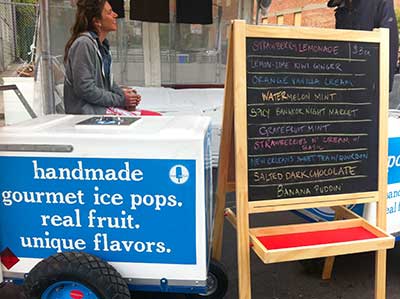 handmade
gourmet ice pops.
real fruit.
unique flavors.
STRAWBERRY LEMONADE $3 ea.
LEMON-LIME KIWI GINGER
ORANGE VANILLA CREAM
WATERMELON MINT
SPICY BANGKOK NIGHT MARKET
GRAPEFRUIT MINT
STRAWBERRIES N' CREAM w/
BASIL
NEW ORLEANS SWEET TEA w/ BOURBON
SALTED DARK CHOCOLATE
BANANA PUDDIN